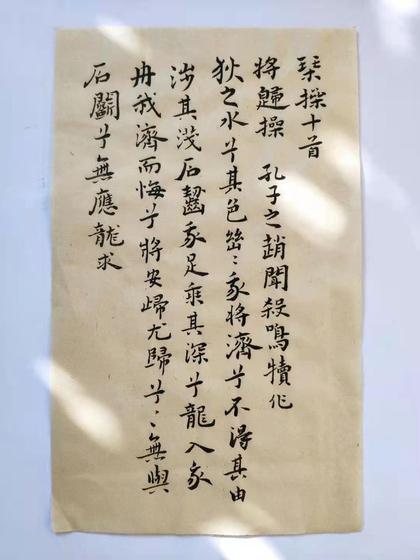 琴操十首
将歸操 孔子之趙聞殺鳴犢作
狄之水兮其色幽〻我将濟兮不得其由
涉其淺石齧我足乘其深兮龍入我
舟我濟而悔兮将安歸尤歸兮〻無與
石鬭兮無應龍求